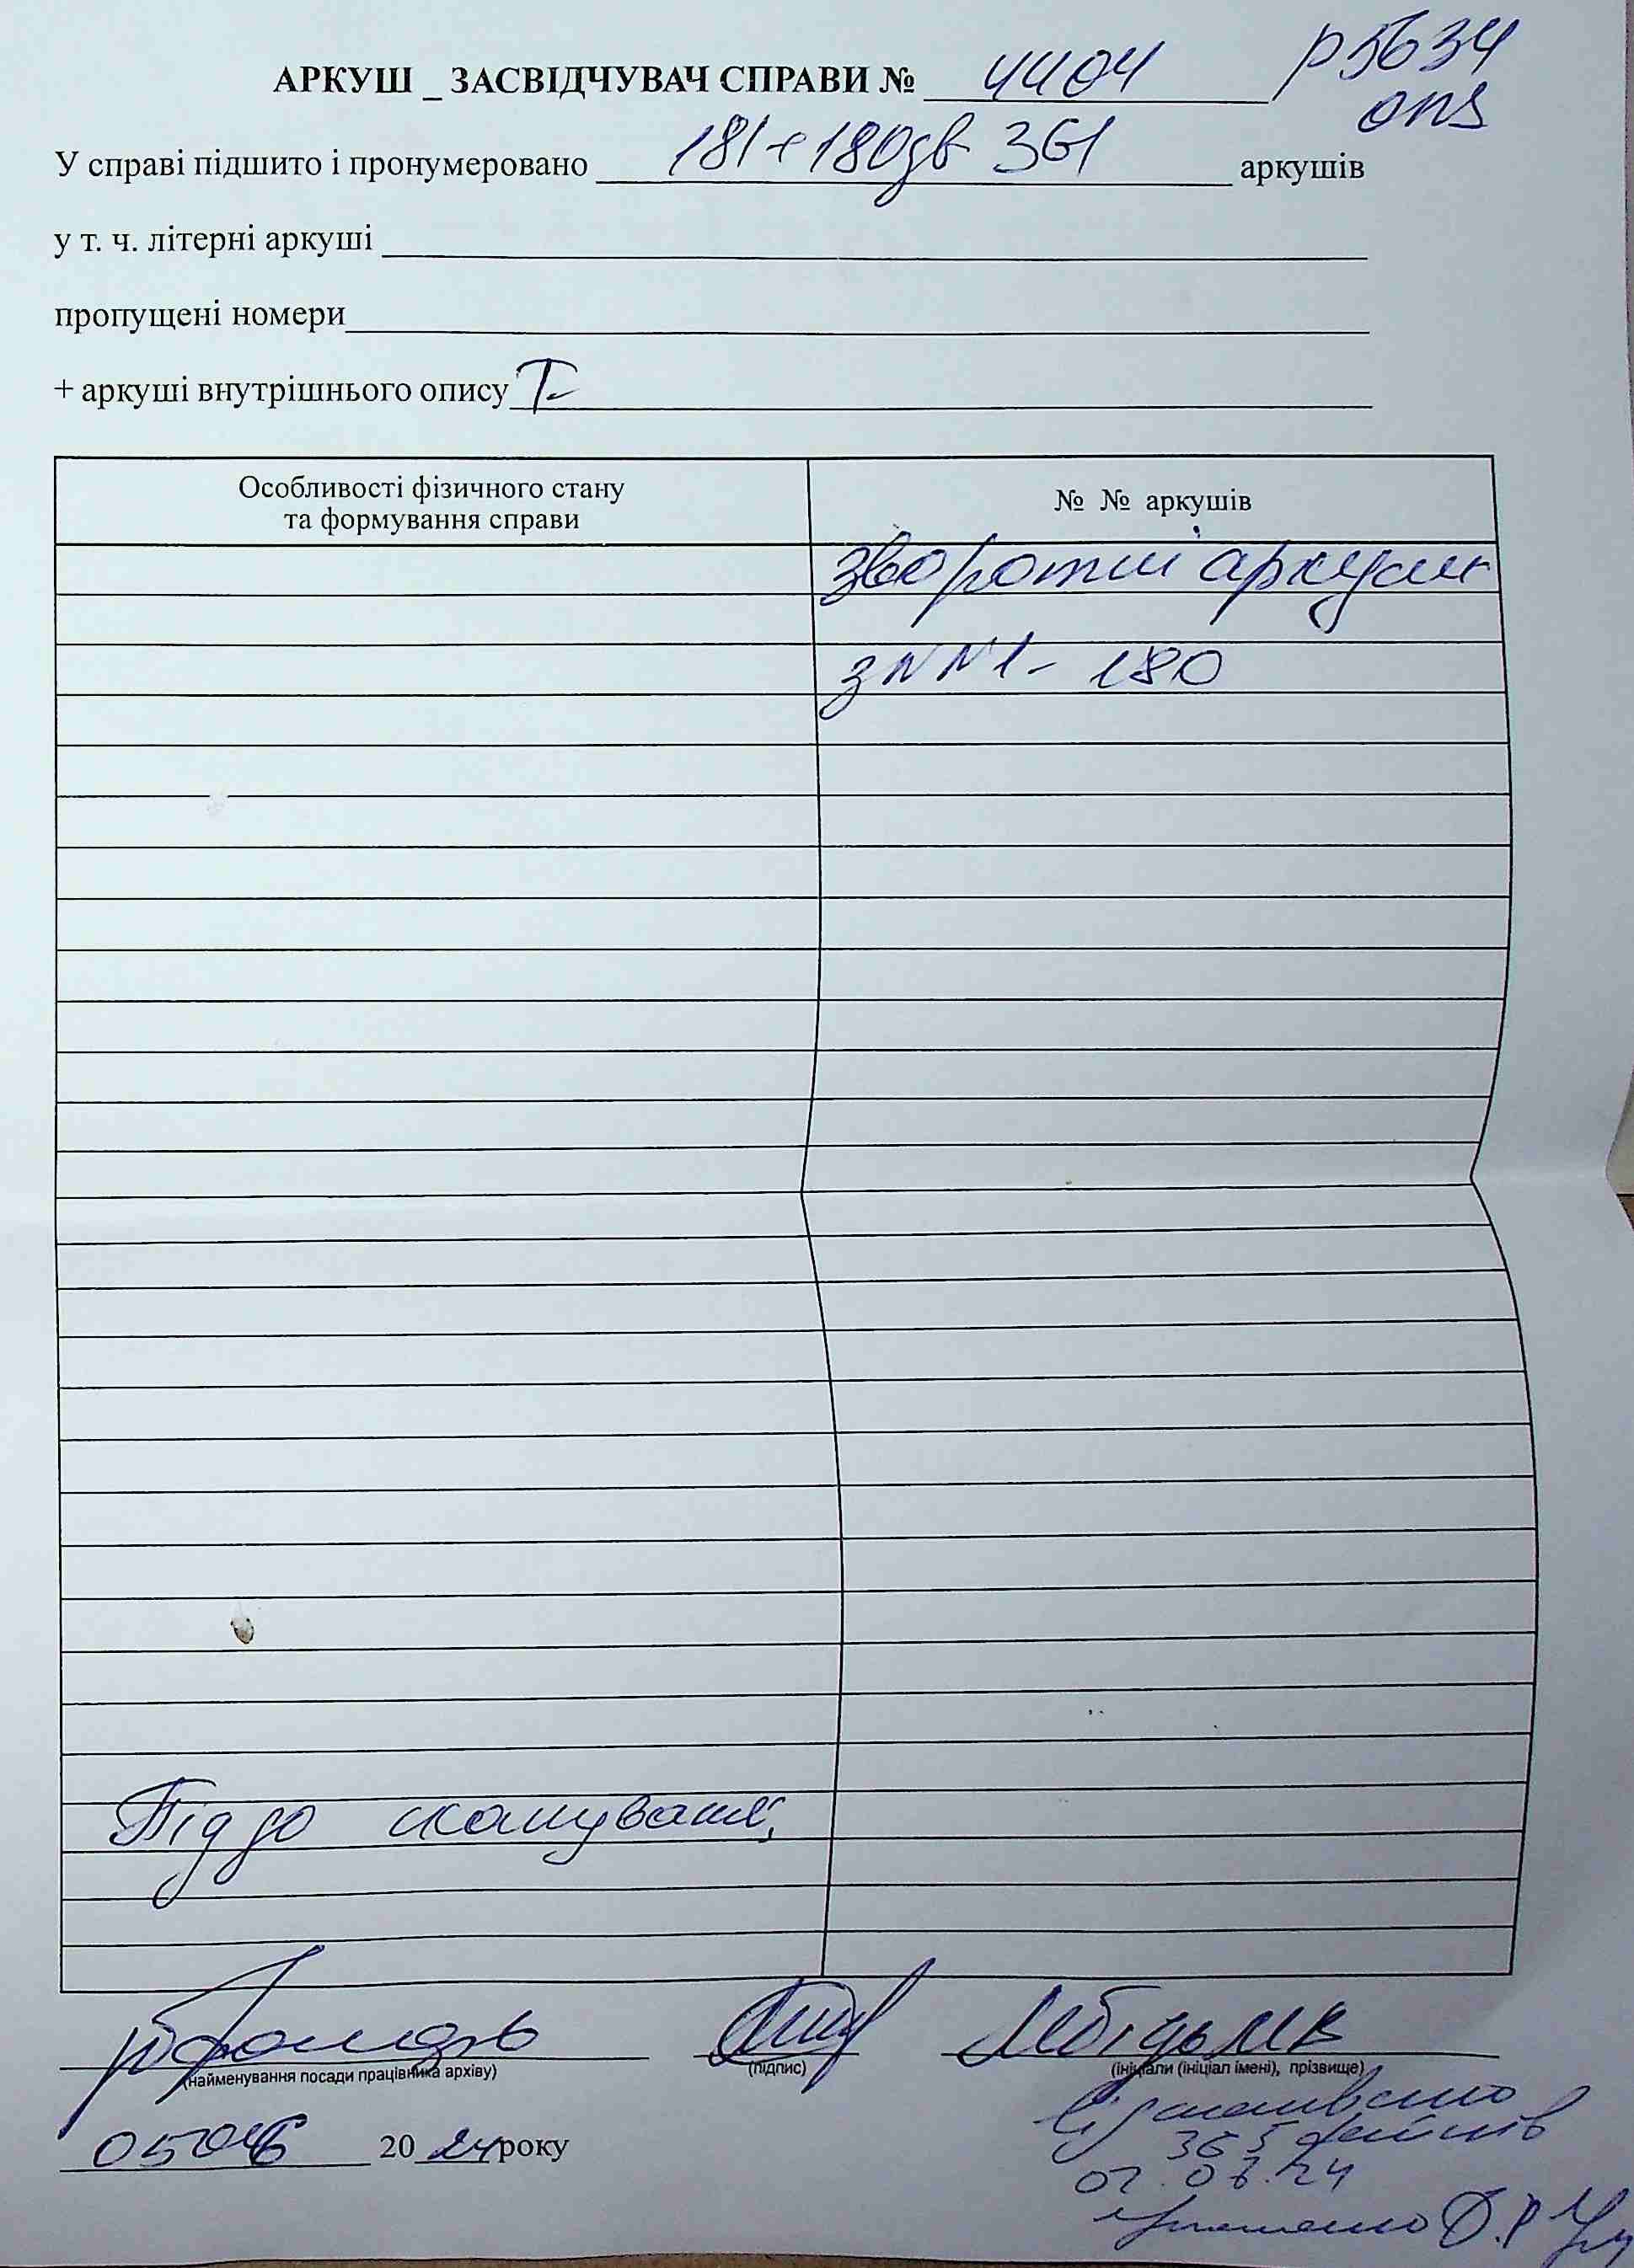 АРКУШ _ ЗАСВІДЧУВАЧ СПРАВИ № 4404 р5634
оп5
У справі підшито і пронумеровано 181+180дв 361 аркушів
у т. ч. літерні аркуші
пропущені номери
+ аркуші внутрішнього опису
Особливості фізичного стану
та формування справи
№ № аркушів
зворотні аркуши
з NN1- 180
Під до сканування
(найменування посади працівника архіву) (підпис) (ініціали (ініціал імені), прізвище)
20 24 року
відскановано
365 файлів